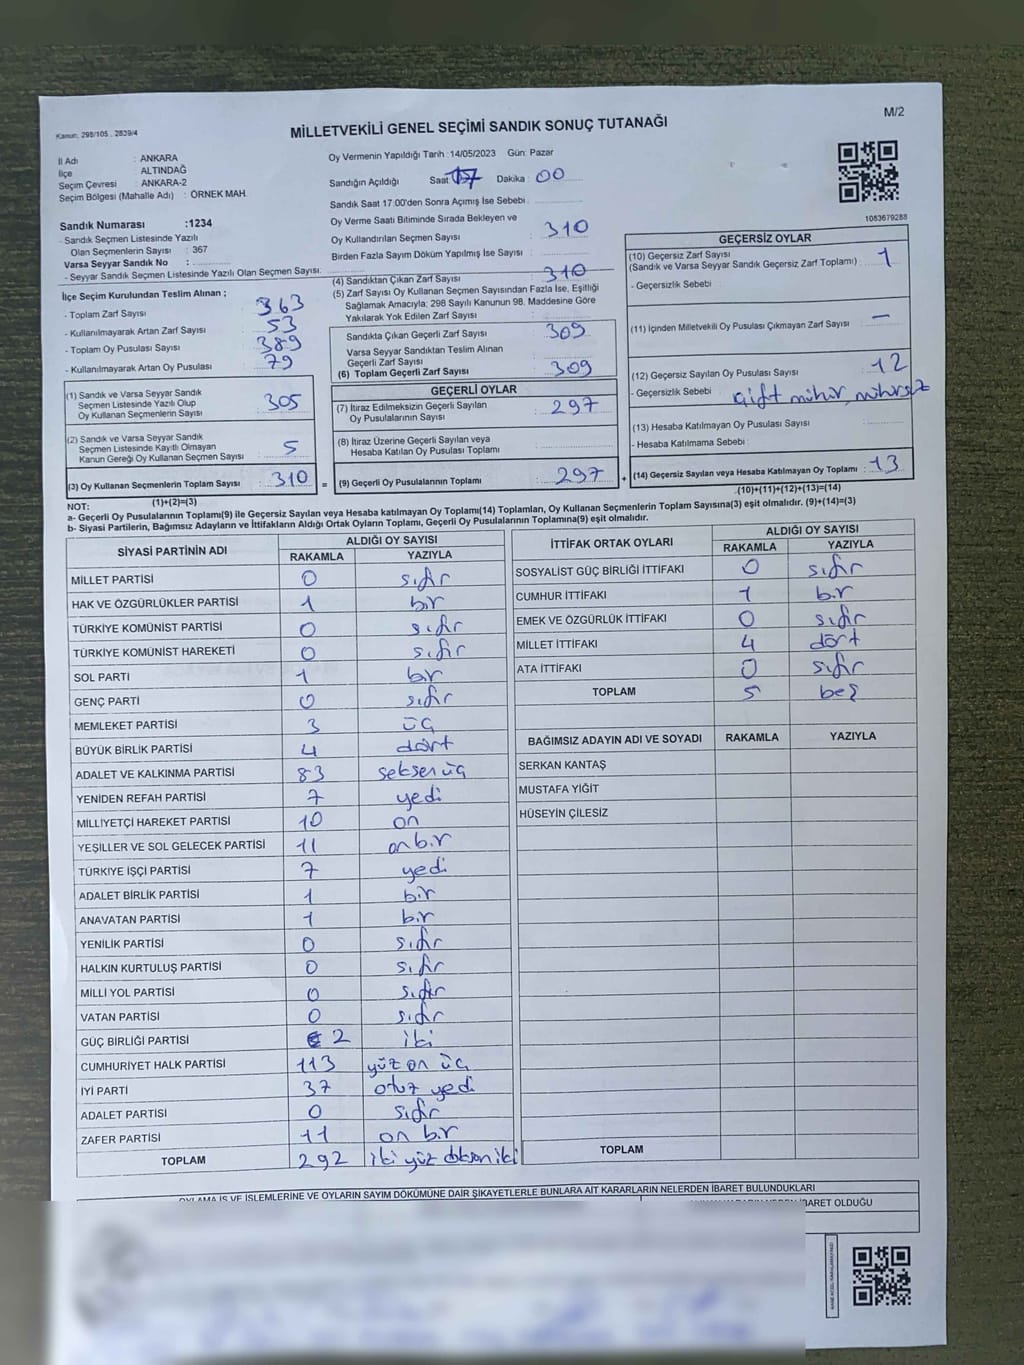 Kanun, 298/105 . 2839/4
M/2
MİLLETVEKİLİ GENEL SEÇİMİ SANDIK SONUÇ TUTANAĞI
İl Adı : ANKARA
İlçe : ALTINDAĞ
Seçim Çevresi : ANKARA-2
Seçim Bölgesi (Mahalle Adı) : ÖRNEK MAH.
Sandık Numarası :1234
- Sandık Seçmen Listesinde Yazılı
Olan Seçmenlerin Sayısı : 367
Varsa Seyyar Sandık No :
- Seyyar Sandık Seçmen Listesinde Yazılı Olan Seçmen Sayısı:
İlçe Seçim Kurulundan Teslim Alınan ;
- Toplam Zarf Sayısı 363
- Kullanılmayarak Artan Zarf Sayısı 53
- Toplam Oy Pusulası Sayısı 389
- Kullanılmayarak Artan Oy Pusulası 79
(1) Sandık ve Varsa Seyyar Sandık
Seçmen Listesinde Yazılı Olup
Oy Kullanan Seçmenlerin Sayısı : 305
(2) Sandık ve Varsa Seyyar Sandık
Seçmen Listesinde Kayıtlı Olmayan
Kanun Gereği Oy Kullanan Seçmen Sayısı : 5
(3) Oy Kullanan Seçmenlerin Toplam Sayısı : 310 =
(1)+(2)=(3)
Oy Vermenin Yapıldığı Tarih :14/05/2023 Gün: Pazar
Sandığın Açıldığı Saat: 17 Dakika : 00
Sandık Saat 17.00'den Sonra Açımış İse Sebebi :
Oy Verme Saati Bitiminde Sırada Bekleyen ve
Oy Kullandırılan Seçmen Sayısı : 310
Birden Fazla Sayım Döküm Yapılmış İse Sayısı :
(4) Sandıktan Çıkan Zarf Sayısı : 310
(5) Zarf Sayısı Oy Kullanan Seçmen Sayısından Fazla İse, Eşitliği
Sağlamak Amacıyla; 298 Sayılı Kanunun 98. Maddesine Göre
Yakılarak Yok Edilen Zarf Sayısı :
Sandıkta Çıkan Geçerli Zarf Sayısı : 309
Varsa Seyyar Sandıktan Teslim Alınan
Geçerli Zarf Sayısı :
(6) Toplam Geçerli Zarf Sayısı : 309
GEÇERLİ OYLAR
(7) İtiraz Edilmeksizin Geçerli Sayılan
Oy Pusulalarının Sayısı : 297
(8) İtiraz Üzerine Geçerli Sayılan veya
Hesaba Katılan Oy Pusulası Toplamı :
(9) Geçerli Oy Pusulalarının Toplamı : 297 +
1083679288
GEÇERSİZ OYLAR
(10) Geçersiz Zarf Sayısı
(Sandık ve Varsa Seyyar Sandık Geçersiz Zarf Toplamı) : 1
- Geçersizlik Sebebi :
(11) İçinden Milletvekili Oy Pusulası Çıkmayan Zarf Sayısı : –
(12) Geçersiz Sayılan Oy Pusulası Sayısı : 12
- Geçersizlik Sebebi : Çift mühür, mühürsüz
(13) Hesaba Katılmayan Oy Pusulası Sayısı :
- Hesaba Katılmama Sebebi :
(14) Geçersiz Sayılan veya Hesaba Katılmayan Oy Toplamı : 13
(10)+(11)+(12)+(13)=(14)
NOT:
a- Geçerli Oy Pusulalarının Toplamı(9) ile Geçersiz Sayılan veya Hesaba Katılmayan Oy Toplamı(14) Toplamları, Oy Kullanan Seçmenlerin Toplam Sayısına(3) eşit olmalıdır. (9)+(14)=(3)
b- Siyasi Partilerin, Bağımsız Adayların ve İttifakların Aldığı Ortak Oyların Toplamı, Geçerli Oy Pusulalarının Toplamına(9) eşit olmalıdır.
SİYASİ PARTİNİN ADI ALDIĞI OY SAYISI
RAKAMLA YAZIYLA
MİLLET PARTİSİ 0 sıfır
HAK VE ÖZGÜRLÜKLER PARTİSİ 1 bir
TÜRKİYE KOMÜNİST PARTİSİ 0 sıfır
TÜRKİYE KOMÜNİST HAREKETİ 0 sıfır
SOL PARTİ 1 bir
GENÇ PARTİ 0 sıfır
MEMLEKET PARTİSİ 3 üç
BÜYÜK BİRLİK PARTİSİ 4 dört
ADALET VE KALKINMA PARTİSİ 83 seksen üç
YENİDEN REFAH PARTİSİ 7 yedi
MİLLİYETÇİ HAREKET PARTİSİ 10 on
YEŞİLLER VE SOL GELECEK PARTİSİ 11 on bir
TÜRKİYE İŞÇİ PARTİSİ 7 yedi
ADALET BİRLİK PARTİSİ 1 bir
ANAVATAN PARTİSİ 1 bir
YENİLİK PARTİSİ 0 sıfır
HALKIN KURTULUŞ PARTİSİ 0 sıfır
MİLLİ YOL PARTİSİ 0 sıfır
VATAN PARTİSİ 0 sıfır
GÜÇ BİRLİĞİ PARTİSİ 2 iki
CUMHURİYET HALK PARTİSİ 113 yüz on üç
İYİ PARTİ 37 otuz yedi
ADALET PARTİSİ 0 sıfır
ZAFER PARTİSİ 11 on bir
TOPLAM 292 iki yüz doksan iki
İTTİFAK ORTAK OYLARI ALDIĞI OY SAYISI
RAKAMLA YAZIYLA
SOSYALİST GÜÇ BİRLİĞİ İTTİFAKI 0 sıfır
CUMHUR İTTİFAKI 1 bir
EMEK VE ÖZGÜRLÜK İTTİFAKI 0 sıfır
MİLLET İTTİFAKI 4 dört
ATA İTTİFAKI 0 sıfır
TOPLAM 5 beş
BAĞIMSIZ ADAYIN ADI VE SOYADI RAKAMLA YAZIYLA
SERKAN KANTAŞ
MUSTAFA YİĞİT
HÜSEYİN ÇİLESİZ
TOPLAM
OYLAMA İŞ VE İŞLEMLERİNE VE OYLARIN SAYIM DÖKÜMÜNE DAİR ŞİKAYETLERLE BUNLARA AİT KARARLARIN NELERDEN İBARET BULUNDUKLARI
İBARET OLDUĞU